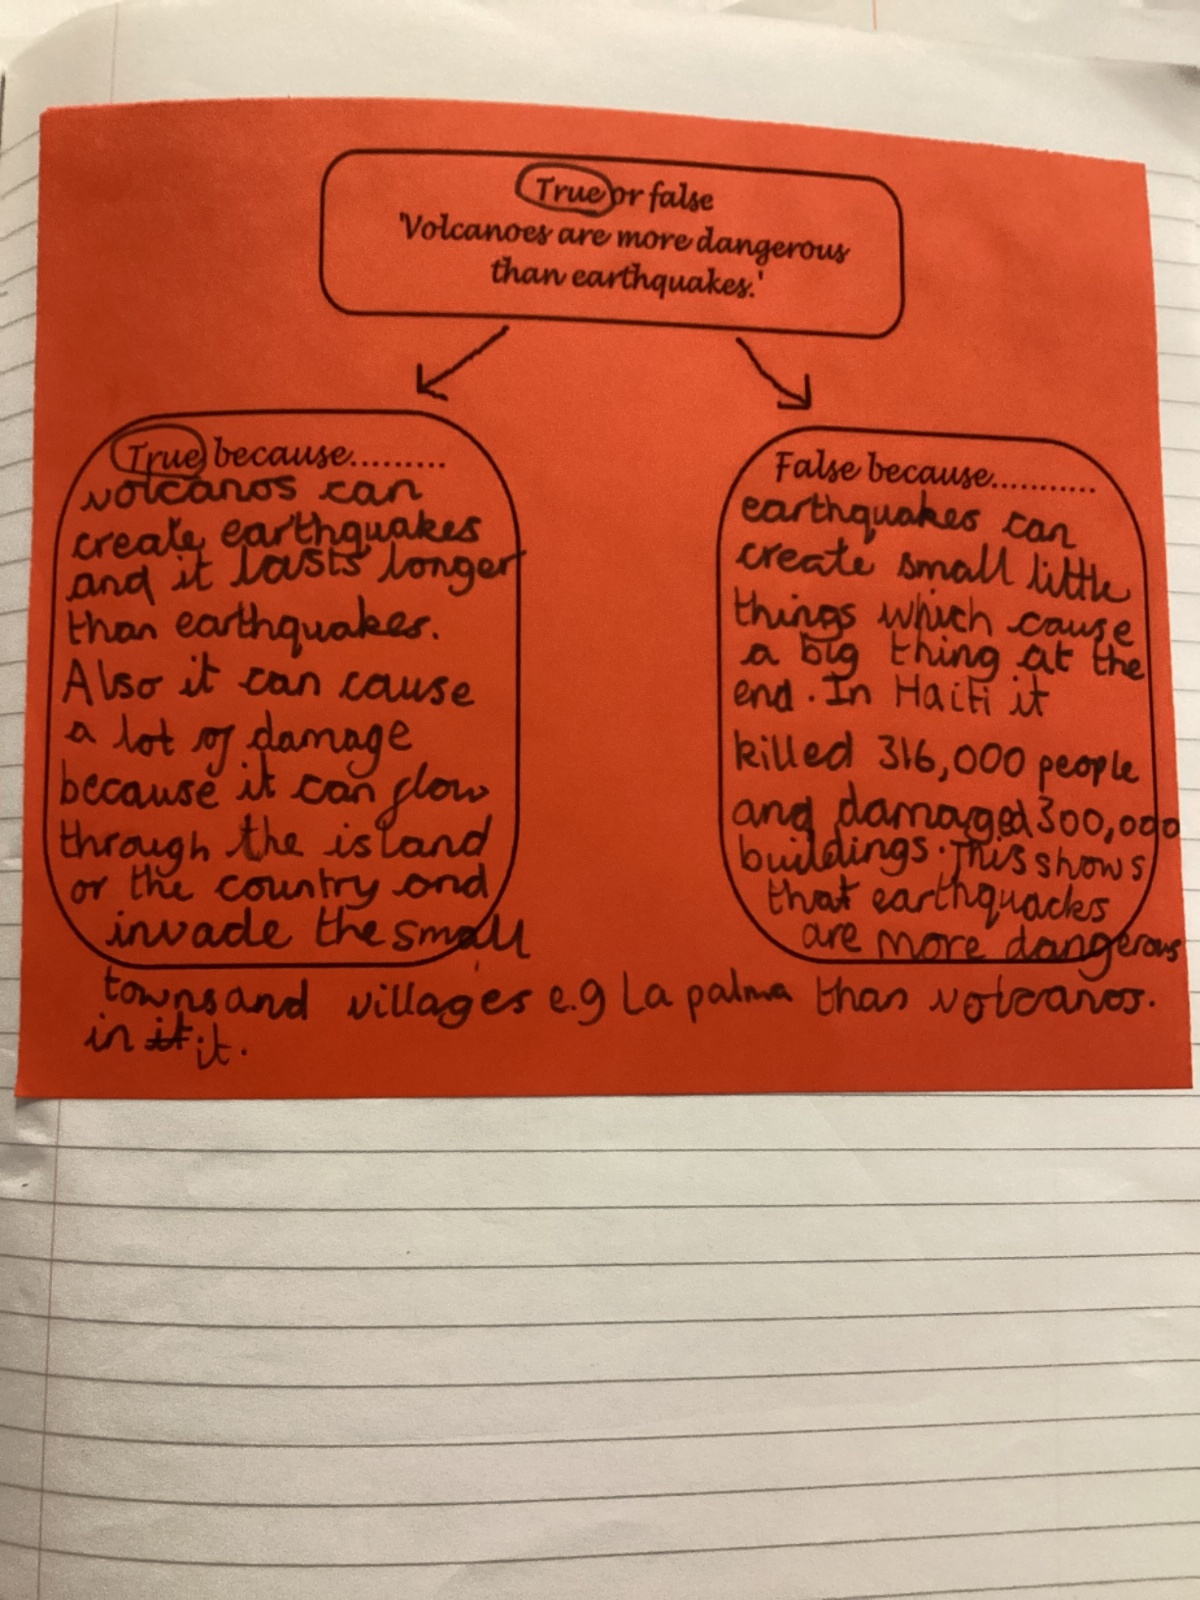 True or false
'Volcanoes are more dangerous
than earthquakes.'
True because.........
volcanos can
create earthquakes
and it lasts longer
than earthquakes.
Also it can cause
a lot of damage
because it can flow
through the island
or the country and
invade the small
towns and villages e.g La palma
in it it.
False because...........
earthquakes can
create small little
things which cause
a big thing at the
end. In Haiti it
killed 316,000 people
and damaged 300,000
buildings. This shows
that earthquacks
are more dangerous
than volcanos.